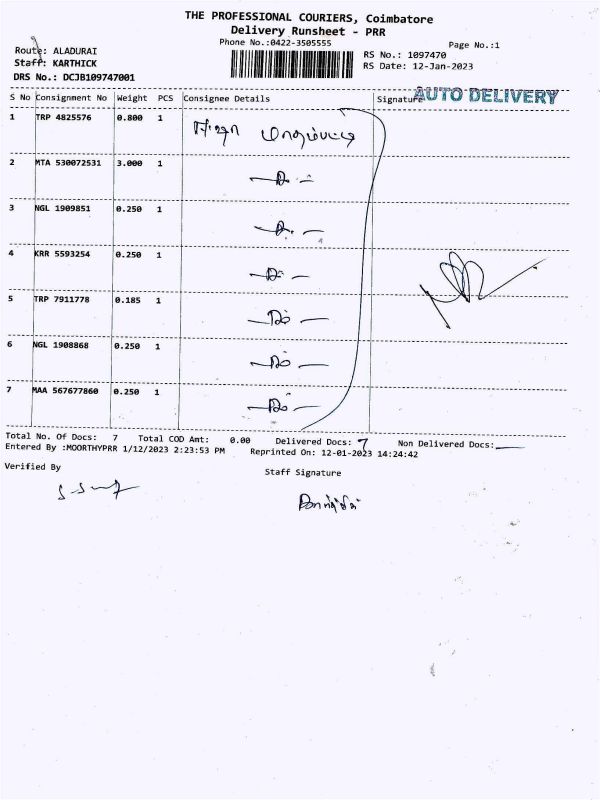 THE PROFESSIONAL COURIERS, Coimbatore
Delivery Runsheet - PRR
Phone No.:0422-3505555
Page No.:1
Route: ALADURAI
Staff: KARTHICK
DRS No.: DCJB109747001
RS No.: 1097470
RS Date: 12-Jan-2023
S No Consignment No Weight PCS Consignee Details Signature
AUTO DELIVERY
1 TRP 4825576 0.800 1
2 MTA 530072531 3.000 1
3 NGL 1909851 0.250 1
4 KRR 5593254 0.250 1
5 TRP 7911778 0.185 1
6 NGL 1908868 0.250 1
7 MAA 567677860 0.250 1
Total No. Of Docs: 7 Total COD Amt: 0.00 Delivered Docs: 7 Non Delivered Docs:
Entered By :MOORTHYPRR 1/12/2023 2:23:53 PM Reprinted On: 12-01-2023 14:24:42
Verified By
Staff Signature